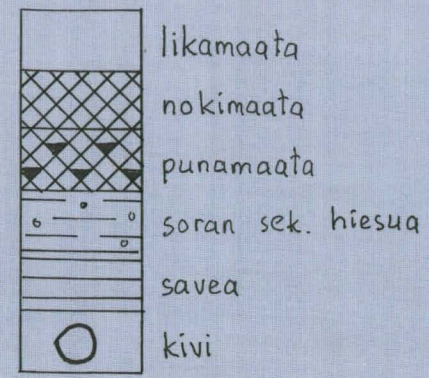 likamaata
nokimaata
punamaata
soran sek. hiesua
savea
kivi